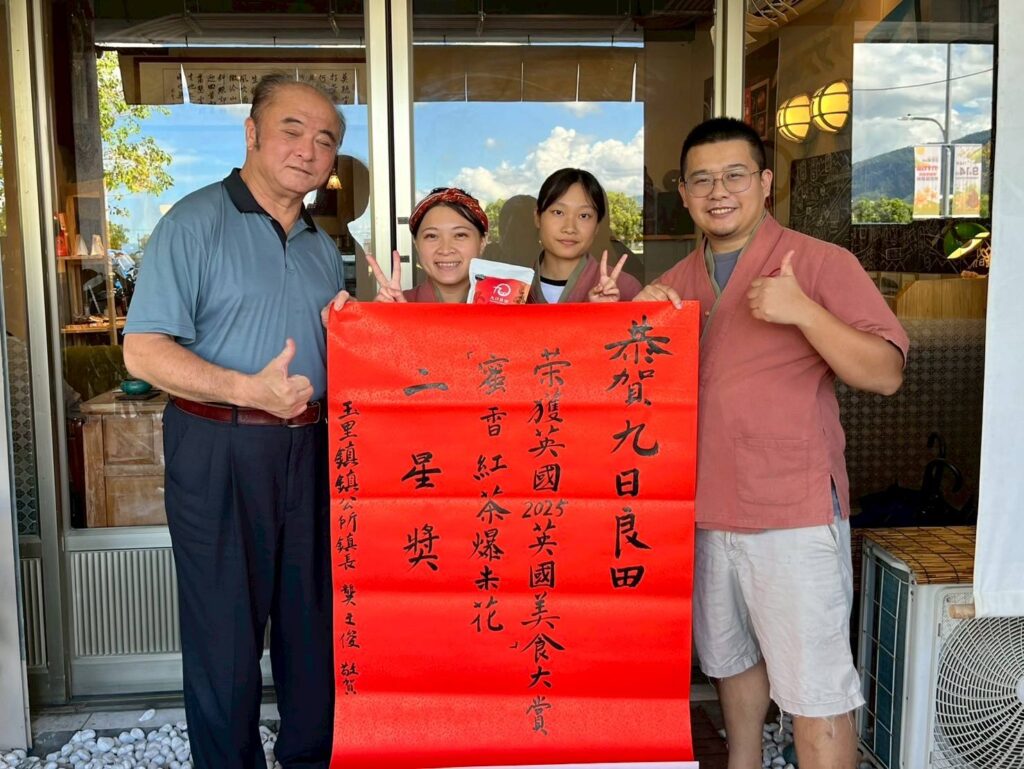 恭賀九日良田
荣獲英國2025英國美食大賞
「蜜香紅茶爆米花」
二星獎
玉里鎮鎮公所鎮長 龔文俊 敬賀
9.14